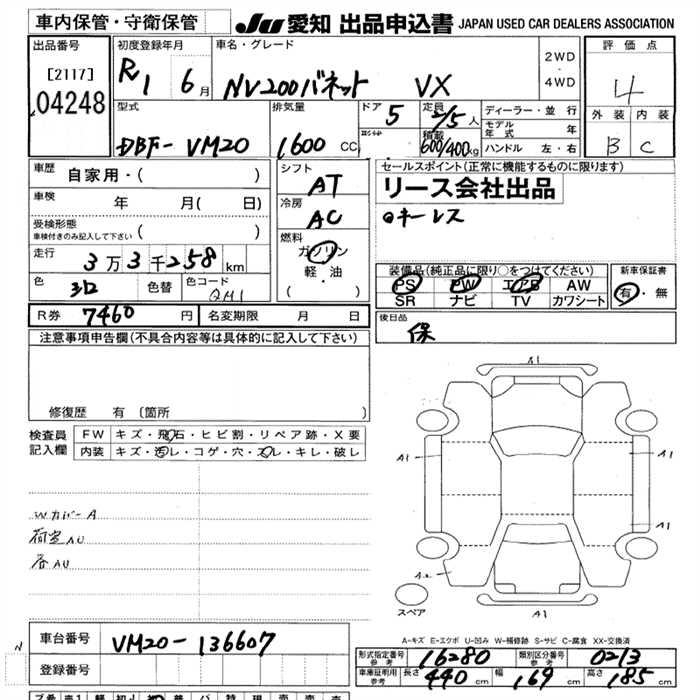 車内保管・守衛保管
JU 愛知 出品申込書 JAPAN USED CAR DEALERS ASSOCIATION
出品番号
[2117]
04248
初度登録年月
R1 6月
車名・グレード
NV200バネット VX
2WD
・
4WD
評価点
4
外装 内装
B C
型式
DBF-VM20
排気量
1600 CC
ドア
5
定員
2/5人
積載
600/400kg
ディーラー・並行
モデル年式 年
ハンドル 左・右
車歴
自家用・( )
車検
年 月( 日)
受検形態
車検付きのみ記入して下さい ( )
走行
3万3千258km
色
シロ
色替
色コード
QM1
シフト
AT
冷房
AC
燃料
ガソリン
軽・油
( )
セールスポイント(正常に機能するものに限ります)
リース会社出品
◎キーレス
装備品(純正品に限り○をつけてください)
PS PW エアB AW
SR ナビ TV カワシート
新車保証書
有・無
R券 7460円
名変期限 月 日
後日品
保
注意事項申告欄(不具合内容等は具体的に記入して下さい)
修復歴 有 〔箇所 〕
検査員
記入欄
FW キズ・飛石・ヒビ割・リペア跡・X要
内装 キズ・汚レ・コゲ・穴・スレ・キレ・破レ
Wカバー A
荷室 AU
各AU
A1
A1
A1
A1
A2
A1
スペア
A-キズ E-エクボ U-凹み W-補修跡 S-サビ C-腐食 XX-交換済
車台番号
VM20-136607
登録番号
N
形式指定番号
参考
16280
類別区分番号
参考
0213
車庫証明用
参考
長さ 440cm 幅 169cm 高さ 185cm